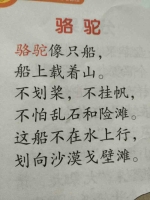 骆驼
骆驼像只船，
船上载着山。
不划桨，不挂帆，
不怕乱石和险滩。
这船不在水上行，
划向沙漠戈壁滩。